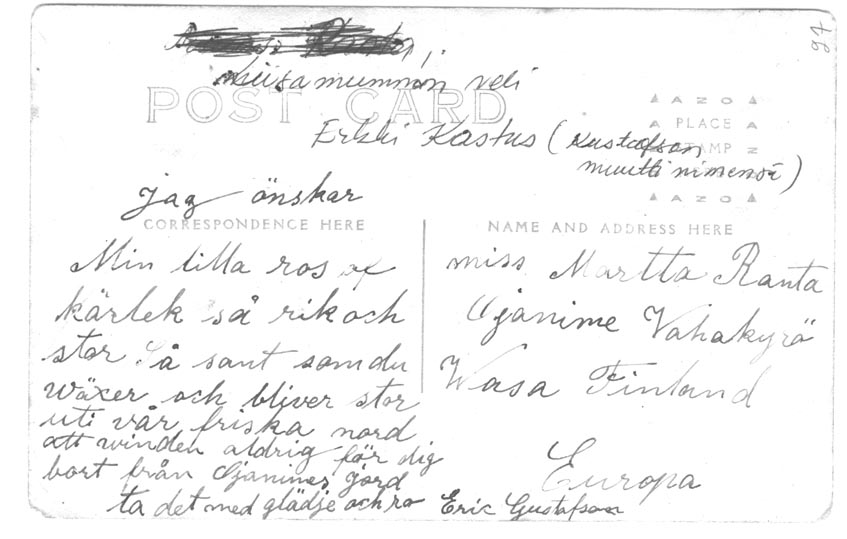 Miisa mummon veli
POST CARD
AZO
PLACE
STAMP
Erkki Kastus (Kustafson
muutti nimensä)
AZO
97
jag önskar
CORRESPONDENCE HERE
Min lilla ros af
kärlek så rik och
stor Så sant som du
wäxer och bliver stor
uti vår friska nord
att winden aldrig för dig
bort från Ojanimes jord
ta det med glädje och ro
Eric Gustafson
NAME AND ADDRESS HERE
miss Martta Ranta
Ojanime Vähäkyrö
Wasa Finland
Europa